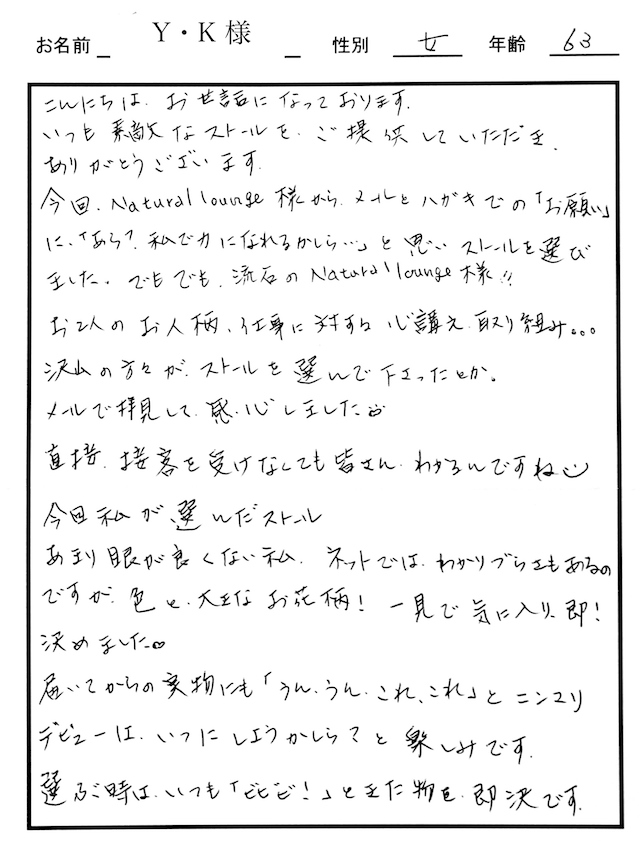 お名前 Y・K様 性別 女 年齢 63
こんにちは、お世話になっております。
いつも素敵なストールを、ご提供していただき、
ありがとうございます。
今回、Natural lounge様から、メールとハガキでの「お願い」
に、「あら？私で力になれるかしら…」と思いストールを選び
ました。でもでも、流石のNatural lounge様!!
お2人のお人柄、仕事に対する心講え、取り組み。。。
沢山の方々が、ストールを選んで下さったとか。
メールで拝見して、感心しました
直接、接客を受けなくても皆さん、わかるんですね
今回私が、選んだストール
あまり眼が良くない私、ネットでは、わかりづらさもあるの
ですが、色と、大きなお花柄！一見で気に入り、即！
決めました♡
届いてからの実物にも「うん、うん、これ、これ」とニンマリ
デビューは、いつにしようかしら？と楽しみです。
選ぶ時は、いつも「ビビビ！」ときた物を、即決です。